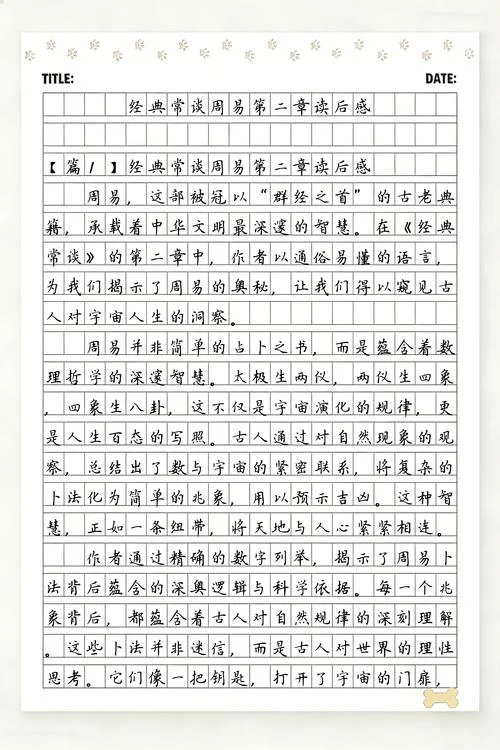 TITLE: DATE:
经典常谈周易第二章读后感
【篇1】经典常谈周易第二章读后感
周易，这部被冠以“群经之首”的古老典
籍，承载着中华文明最深邃的智慧。在《经典
常谈》的第二章中，作者以通俗易懂的语言，
为我们揭示了周易的奥秘，让我们得以窥见古
人对宇宙人生的洞察。
周易并非简单的占卜之书，而是蕴含着数
理哲学的深邃智慧。太极生两仪，两仪生四象
，四象生八卦，这不仅是宇宙演化的规律，更
是人生百态的写照。古人通过对自然现象的观
察，总结出了数与宇宙的紧密联系，将复杂的
卜法化为简单的兆象，用以预示吉凶。这种智
慧，正如一条纽带，将天地与人心紧紧相连。
作者通过精确的数字列举，揭示了周易卜
法背后蕴含的深奥逻辑与科学依据。每一个兆
象背后，都蕴含着古人对自然规律的深刻理解
。这些卜法并非迷信，而是古人对世界的理性
思考。它们像一把钥匙，打开了宇宙的门扉，